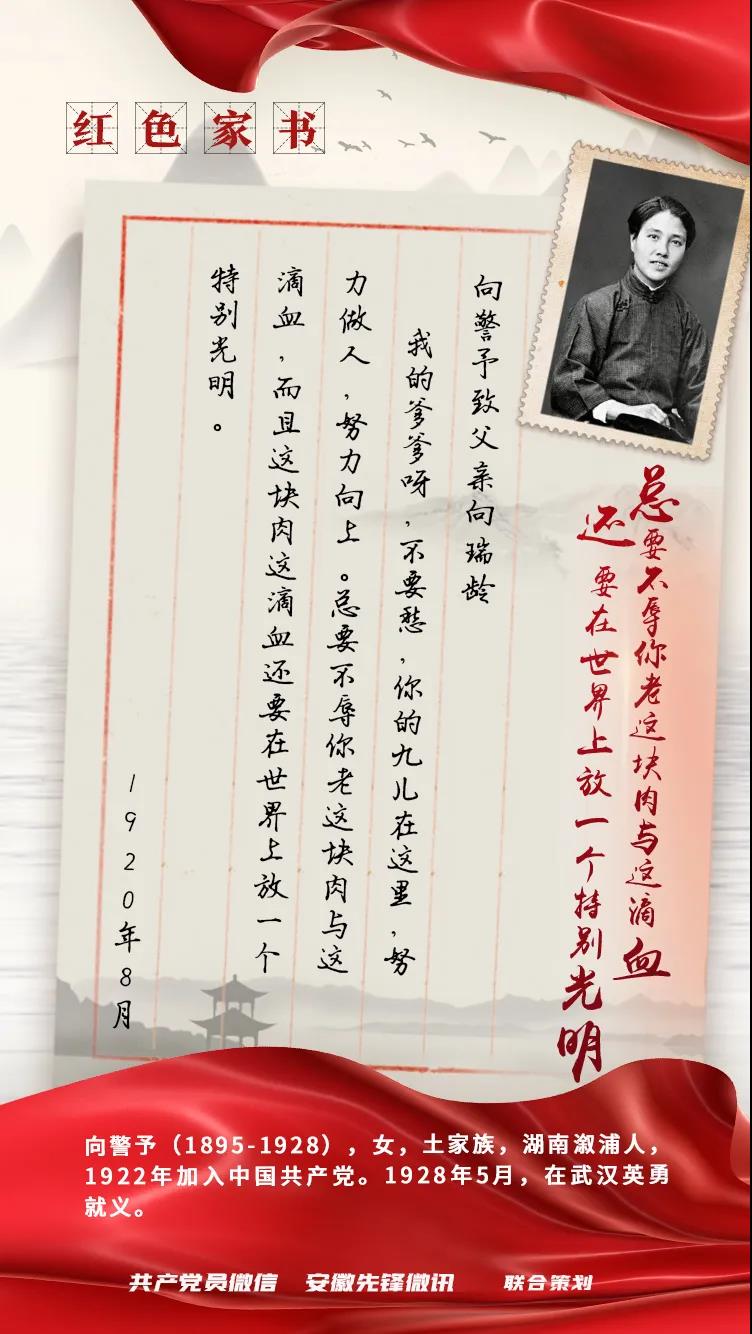 红色家书
向警予致父亲向瑞龄
我的爹爹呀，不要愁，你的九儿在这里，努
力做人，努力向上。总要不辱你老这块肉与这
滴血，而且这块肉这滴血还要在世界上放一个
特别光明。
1920年8月
总要不辱你老这块肉与这滴血
还要在世界上放一个特别光明
向警予（1895-1928），女，土家族，湖南溆浦人，
1922年加入中国共产党。1928年5月，在武汉英勇
就义。
共产党员微信 安徽先锋微讯 联合策划